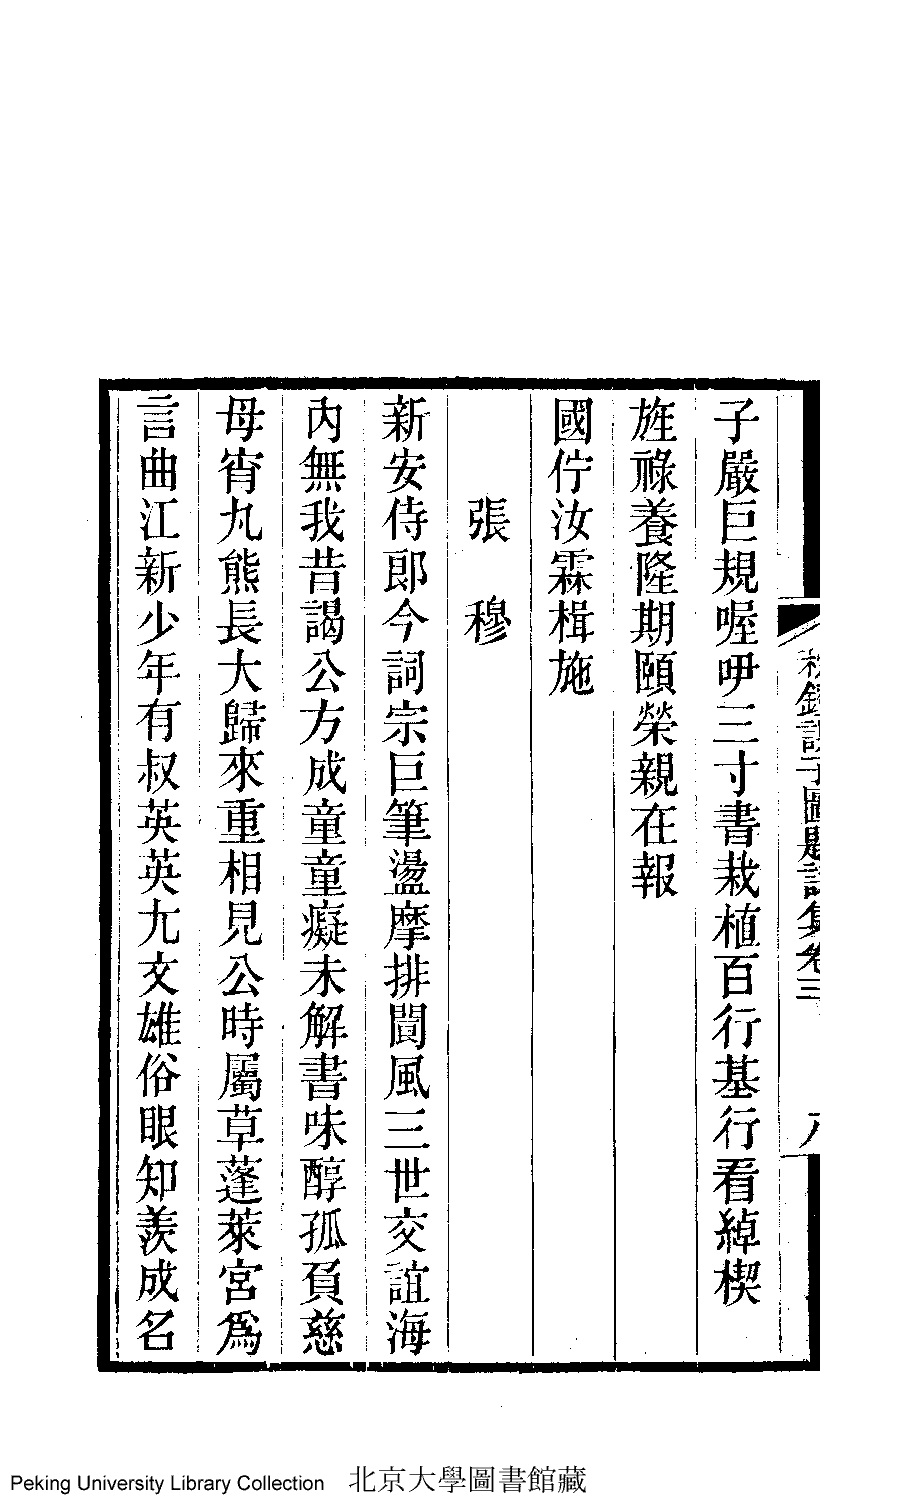 秋鐙課子圖題詠集卷三 八
子嚴巨規喔吚三寸書栽植百行基行看綽楔
旌祿養隆期頤榮親在報
國佇汝霖楫施
張穆
新安侍郎今詞宗巨筆盪摩排閶風三世交誼海
內無我昔謁公方成童童癡未解書味醇孤負慈
母宵丸熊長大歸來重相見公時屬草蓬萊宮爲
言曲江新少年有叔英英尤文雄俗眼知羨成名
Peking University Library Collection 北京大學圖書館藏